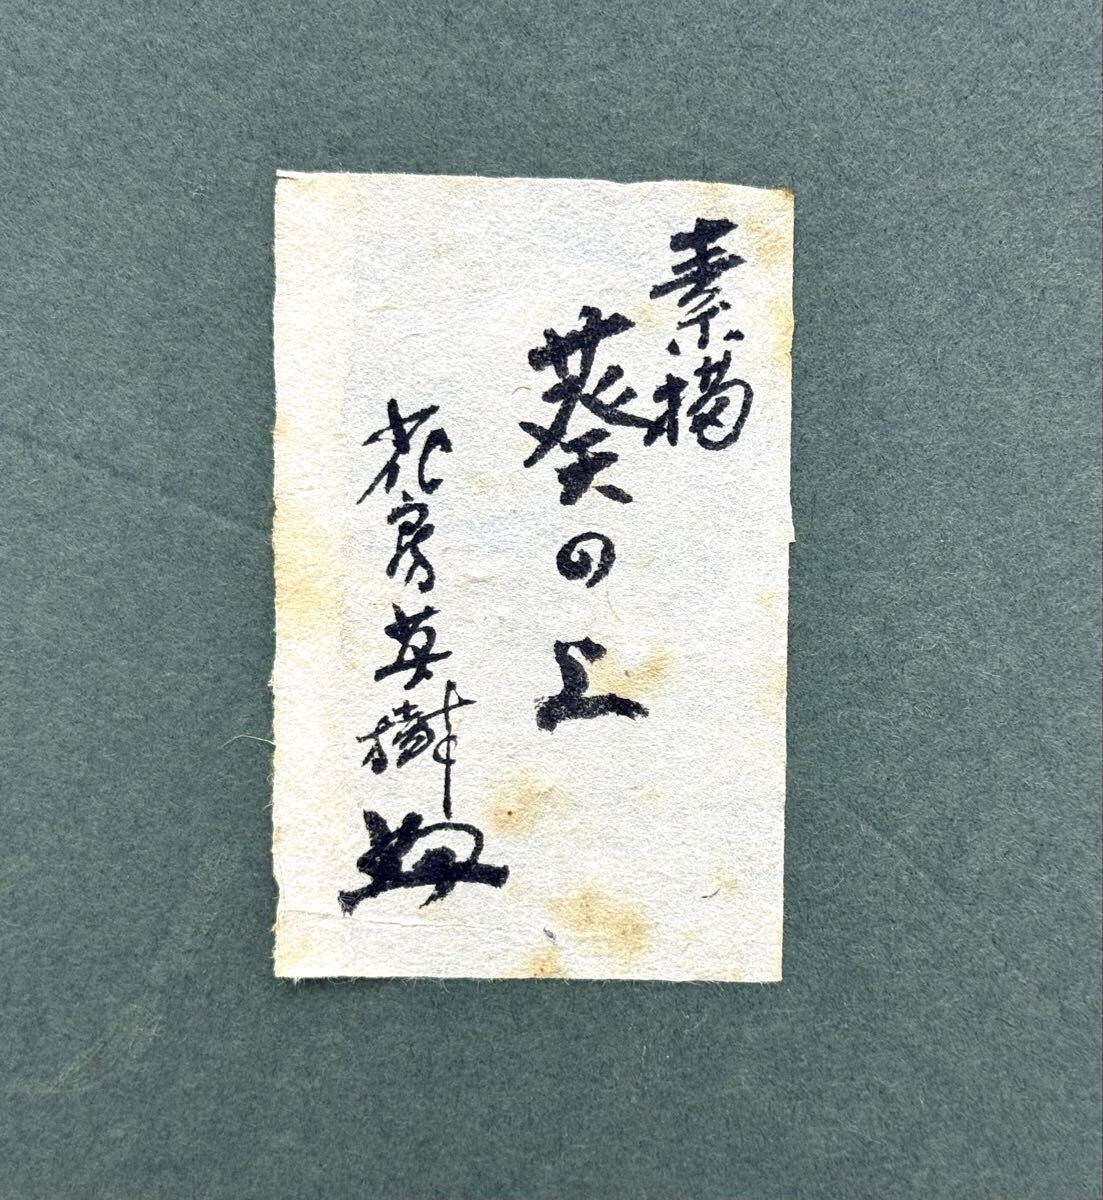 素描
葵の上
花房英樹